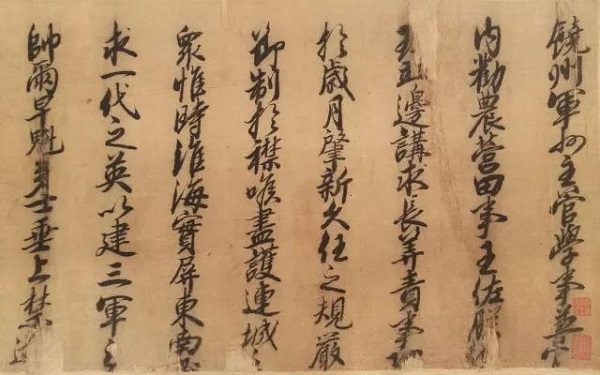 饒州軍州主管學事兼
内勸農營田事王佐朕
邊講求長筭責事
於歲月肇新久任之規嚴
節制於襟喉盡護連城之
衆惟時淮海實屏東南
求一代之英以建三軍之
帥爾早魁多士垂上禁